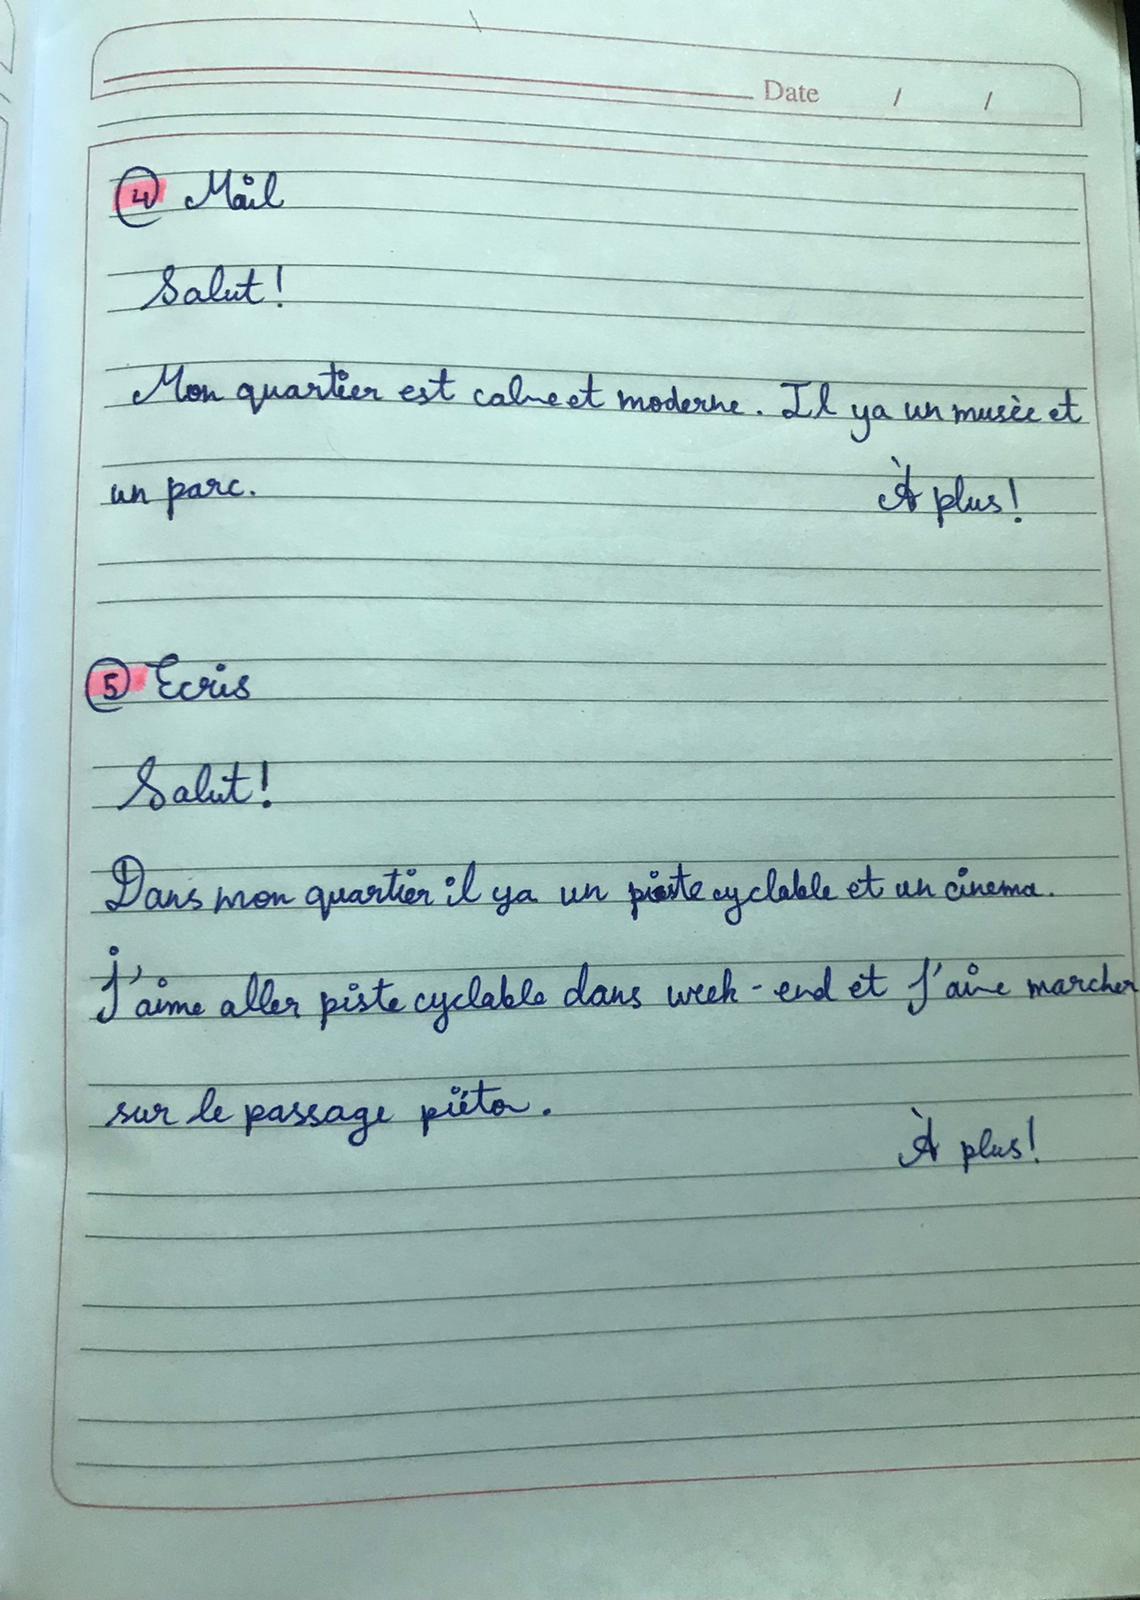 Date / /
4 Mail
Salut!
Mon quartier est calme et moderne. Il ya un musèe et
un parc.
À plus!
5 Ecris
Salut!
Dans mon quartier il ya un piste cyclable et un cinema.
J'aime aller piste cyclable dans week-end et J'aime marcher
sur le passage piéton.
À plus!